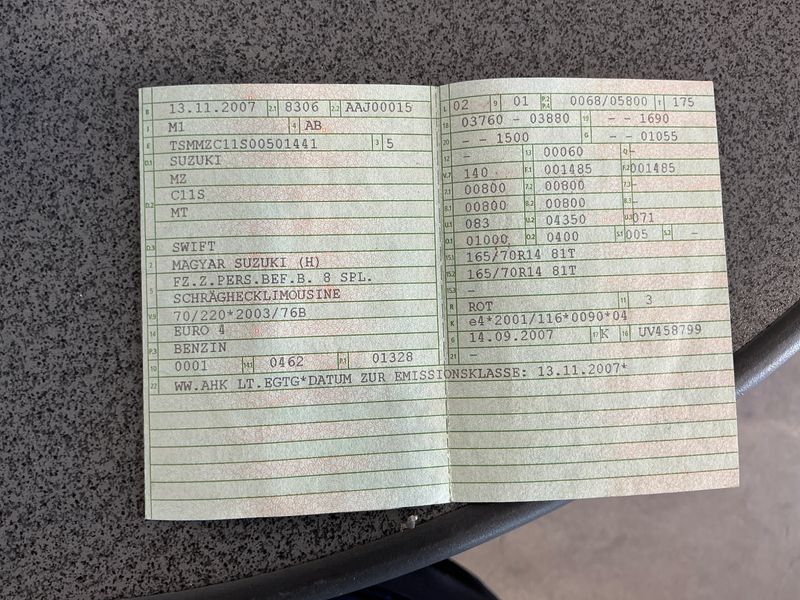 B 13.11.2007 2.1 8306 2.2 AAJ00015
J M1 4 AB
E TSMMZC11S00501441 3 5
D.1 SUZUKI
MZ
D.2 C11S
MT
D.3 SWIFT
2 MAGYAR SUZUKI (H)
5 FZ.Z.PERS.BEF.B. 8 SPL.
SCHRÄGHECKLIMOUSINE
V.9 70/220*2003/76B
14 EURO 4
P.3 BENZIN
10 0001 14.1 0462 P.1 01328
22 WW.AHK LT.EGTG*DATUM ZUR EMISSIONSKLASSE: 13.11.2007*
L 02 9 01 P.2 P.4 0068/05800 T 175
18 03760 - 03880 19 - - 1690
20 - - 1500 G - - 01055
12 - 13 00060 Q -
V.7 140 F.1 001485 F.2 001485
7.1 00800 7.2 00800 7.3 -
8.1 00800 8.2 00800 8.3 -
U.1 083 U.2 04350 U.3 071
O.1 01000 O.2 0400 S.1 005 S.2 -
15.1 165/70R14 81T
15.2 165/70R14 81T
15.3 -
R ROT 11 3
K e4*2001/116*0090*04
6 14.09.2007 17 K 16 UV458799
21 -